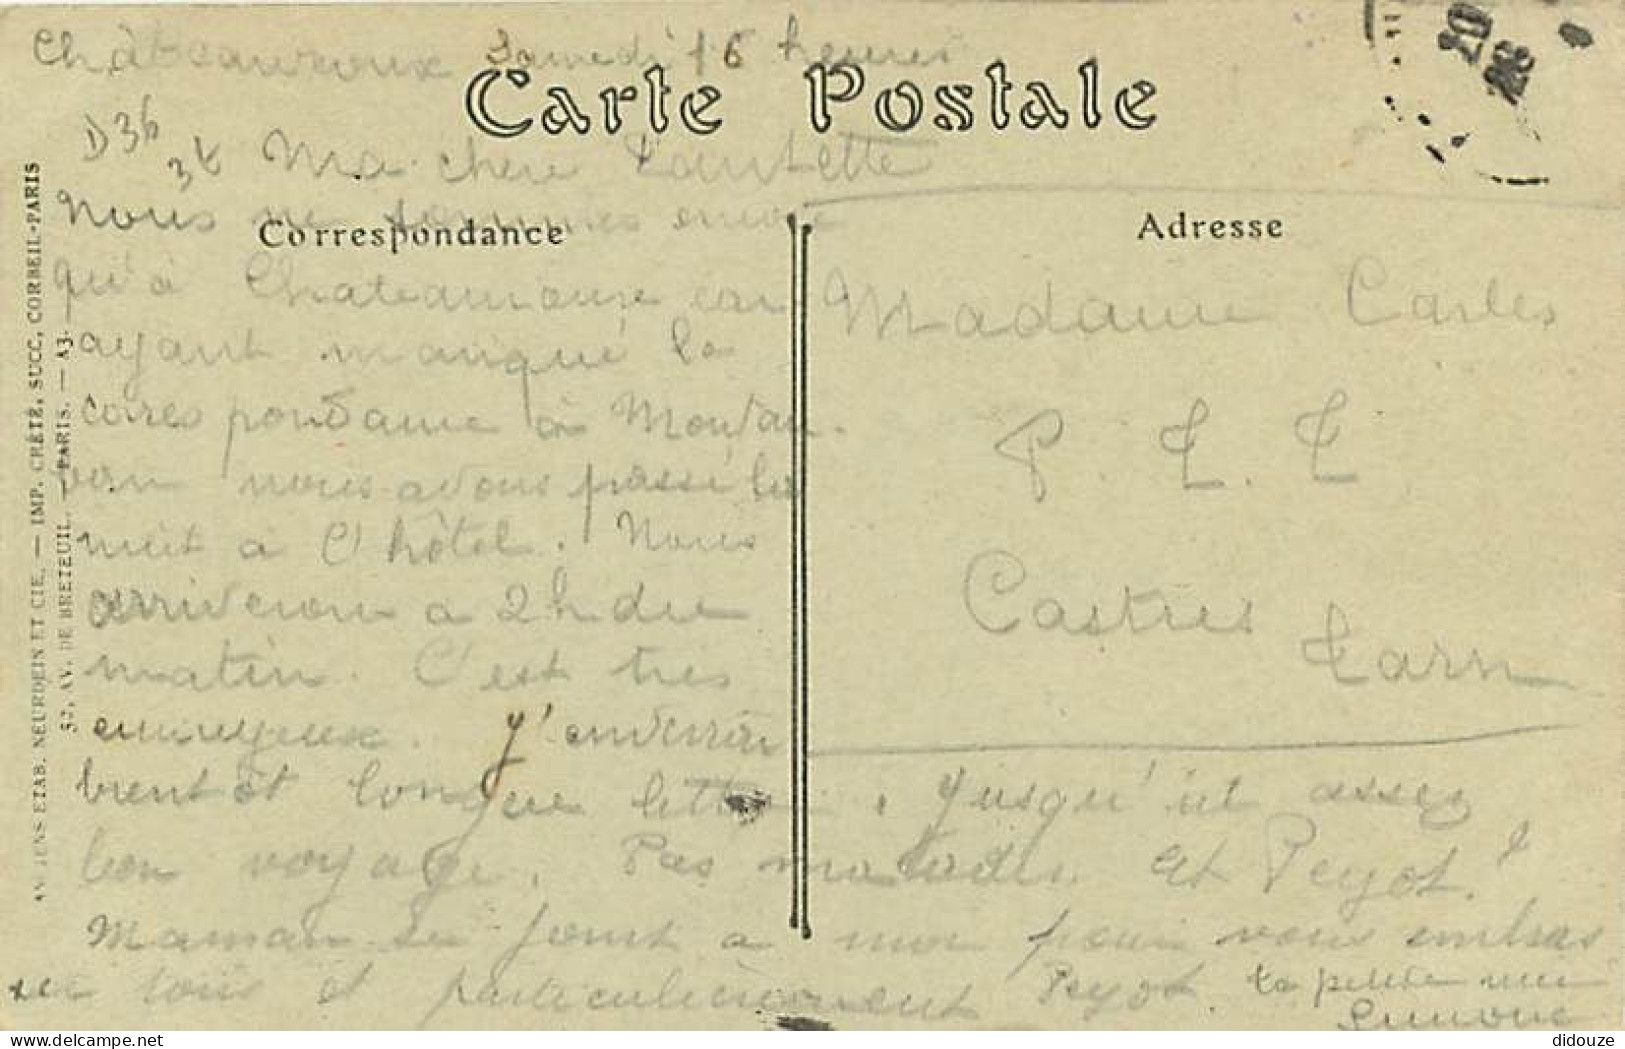 Châteauroux Samedi 16 heures
Carte Postale
20
26
D36
Ma chère Paulette
Nous ne sommes encore
Correspondance
Adresse
qu'à Chateauroux car
ayant manqué la
correspondance à Montau-
ban nous avons passé la
nuit à l'hôtel. Nous
arriverons à 2h du
matin. C'est très
ennuyeux. J'enverrai
bientôt longue lettre. Jusqu'ici assez
bon voyage. Pas malades. Et Peyot?
Maman se joint à moi pour vous embras
ser tous et particulièrement Peyot. ta petite
Simone
Madame Carles
P. T. T
Castres
Tarn
ANCIENS ETAB. NEURDEIN ET CIE. — IMP. CRÉTÉ, SUCC, CORBEIL-PARIS
52, AV. DE BRETEUIL. — PARIS. — A3.
didouze